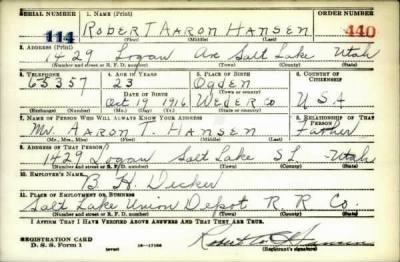 SERIAL NUMBER 1. NAME (Print) ORDER NUMBER
114 ROBERT AARON HANSEN 440
(First) (Middle) (Last)
2. ADDRESS (Print)
1429 Logan Ave Salt Lake Utah
(Number and street or R. F. D. number) (Town) (County) (State)
3. TELEPHONE 4. AGE IN YEARS 5. PLACE OF BIRTH 6. COUNTRY OF CITIZENSHIP
65357 23 Ogden
DATE OF BIRTH
Oct 19 1916 Weber Co USA
(Exchange) (Number) (Mo.) (Day) (Yr.) (Town or county) (State or country)
7. NAME OF PERSON WHO WILL ALWAYS KNOW YOUR ADDRESS 8. RELATIONSHIP OF THAT PERSON
Mr. AARON T. HANSEN Father
(Mr., Mrs., Miss) (First) (Middle) (Last)
9. ADDRESS OF THAT PERSON
1429 Logan Salt Lake S L Utah
(Number and street or R. F. D. number) (Town) (County) (State)
10. EMPLOYER'S NAME
B. H. Decker
11. PLACE OF EMPLOYMENT OR BUSINESS
Salt Lake Union Depot R R Co.
(Number and street or R. F. D. number) (Town) (County) (State)
I AFFIRM THAT I HAVE VERIFIED ABOVE ANSWERS AND THAT THEY ARE TRUE.
REGISTRATION CARD
D. S. S. Form 1 (over) 16-17105 (Registrant's signature)